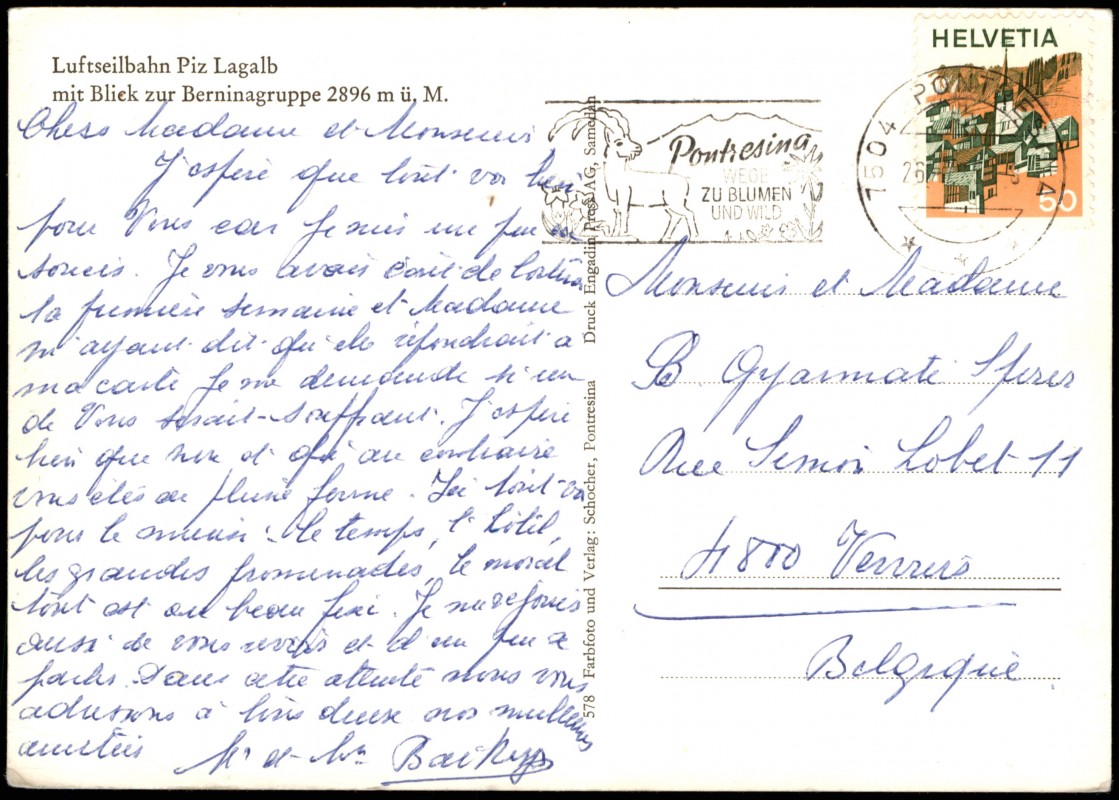 Luftseilbahn Piz Lagalb
mit Blick zur Berninagruppe 2896 m ü. M.
Chers Madame et Monsieur
J'espère que tout va bien
pour Vous car je suis un peu en
soucis. Je vous avais écrit de
la première semaine et Madame
m'ayant dit qu'elle répondrait a
ma carte je me demande si un
de Vous serait souffrant. J'espère
bien que non et qu'au contraire
vous etes en pleine forme. Ici tout va
pour le mieux: le temps, l'hôtel,
les grandes promenades, le moral
tout est au beau fixe. Je me rejouis
aussi de vous revoir et d'un peu se
parler. Dans cette attente nous vous
adressons à tous deux nos meilleures
amitiés
Mr et Mme
578 Farbfoto und Verlag: Schocher, Pontresina Druck Engadin Press AG, Samedan
Pontresina
WEGE
ZU BLUMEN
UND WILD
7504 PONTRESINA
HELVETIA
50
Monsieur et Madame
B Gyarmati
Rue Simon Lobet 11
4800 Verviers
Belgique